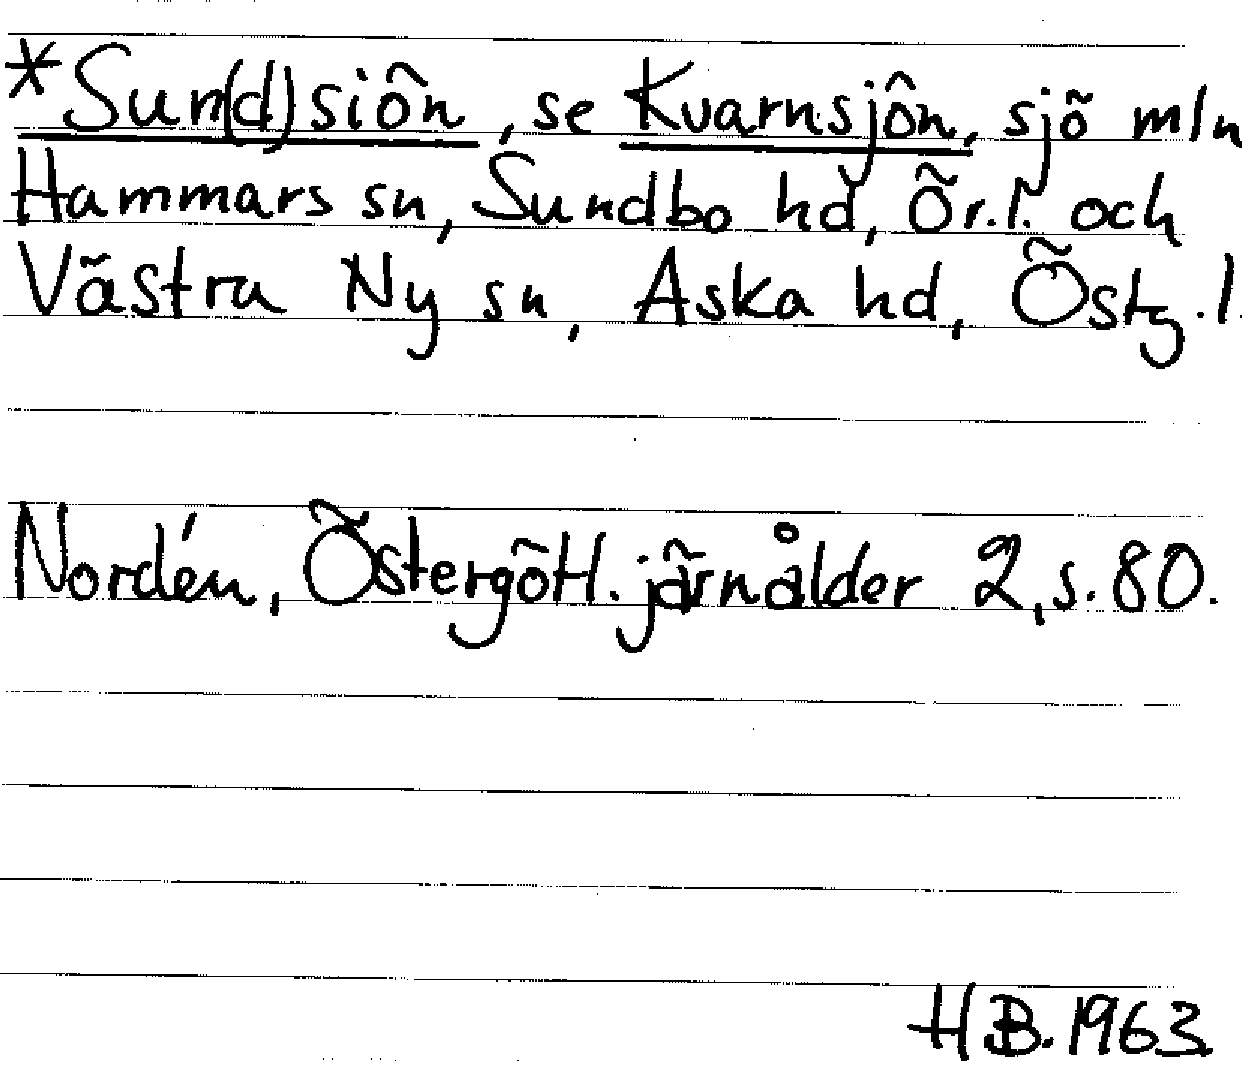 *Sun(d)siön, se Kvarnsjön, sjö mln
Hammars sn, Sundbo hd, Ör.l. och
Västra Ny sn, Aska hd, Östg.l.
Nordén, Östergötl. järnålder 2, s. 80.
H.B. 1963